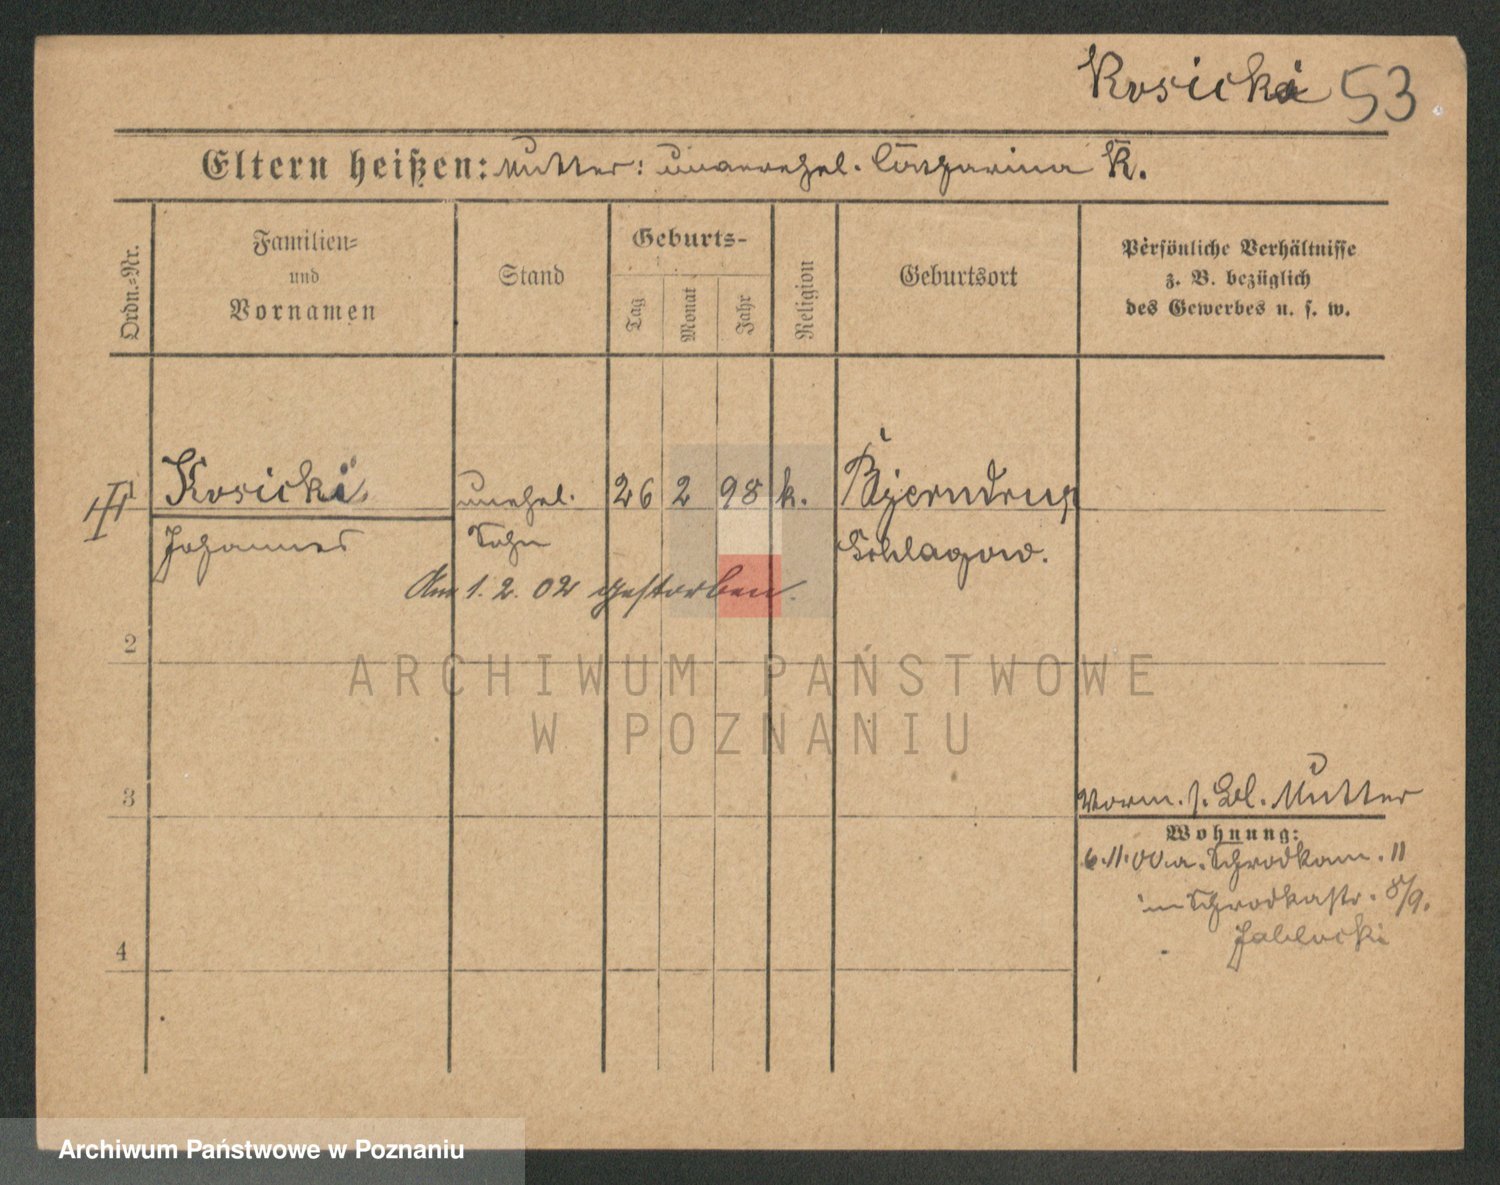 Kosicki 53
Eltern heißen: Mutter: unverehel. Catharina K.
Ordn.-Nr.
Familien- und Vornamen
Stand
Geburts-
Tag
Monat
Jahr
Religion
Geburtsort
Persönliche Verhältnisse
z. B. bezüglich
des Gewerbes u. s. w.
1
Kosicki, unehel. 26 2 98 k. Bjerndrup
Johannes Sohn Schlagow.
Am 1. 2. 02 gestorben.
2
ARCHIWUM PAŃSTWOWE
W POZNANIU
3
Vorm. s. Bl. Mutter
Wohnung:
6.11.00 a. Schrodkam. 11
in Schrodkastr. 8/9.
Jablocki
4
Archiwum Państwowe w Poznaniu